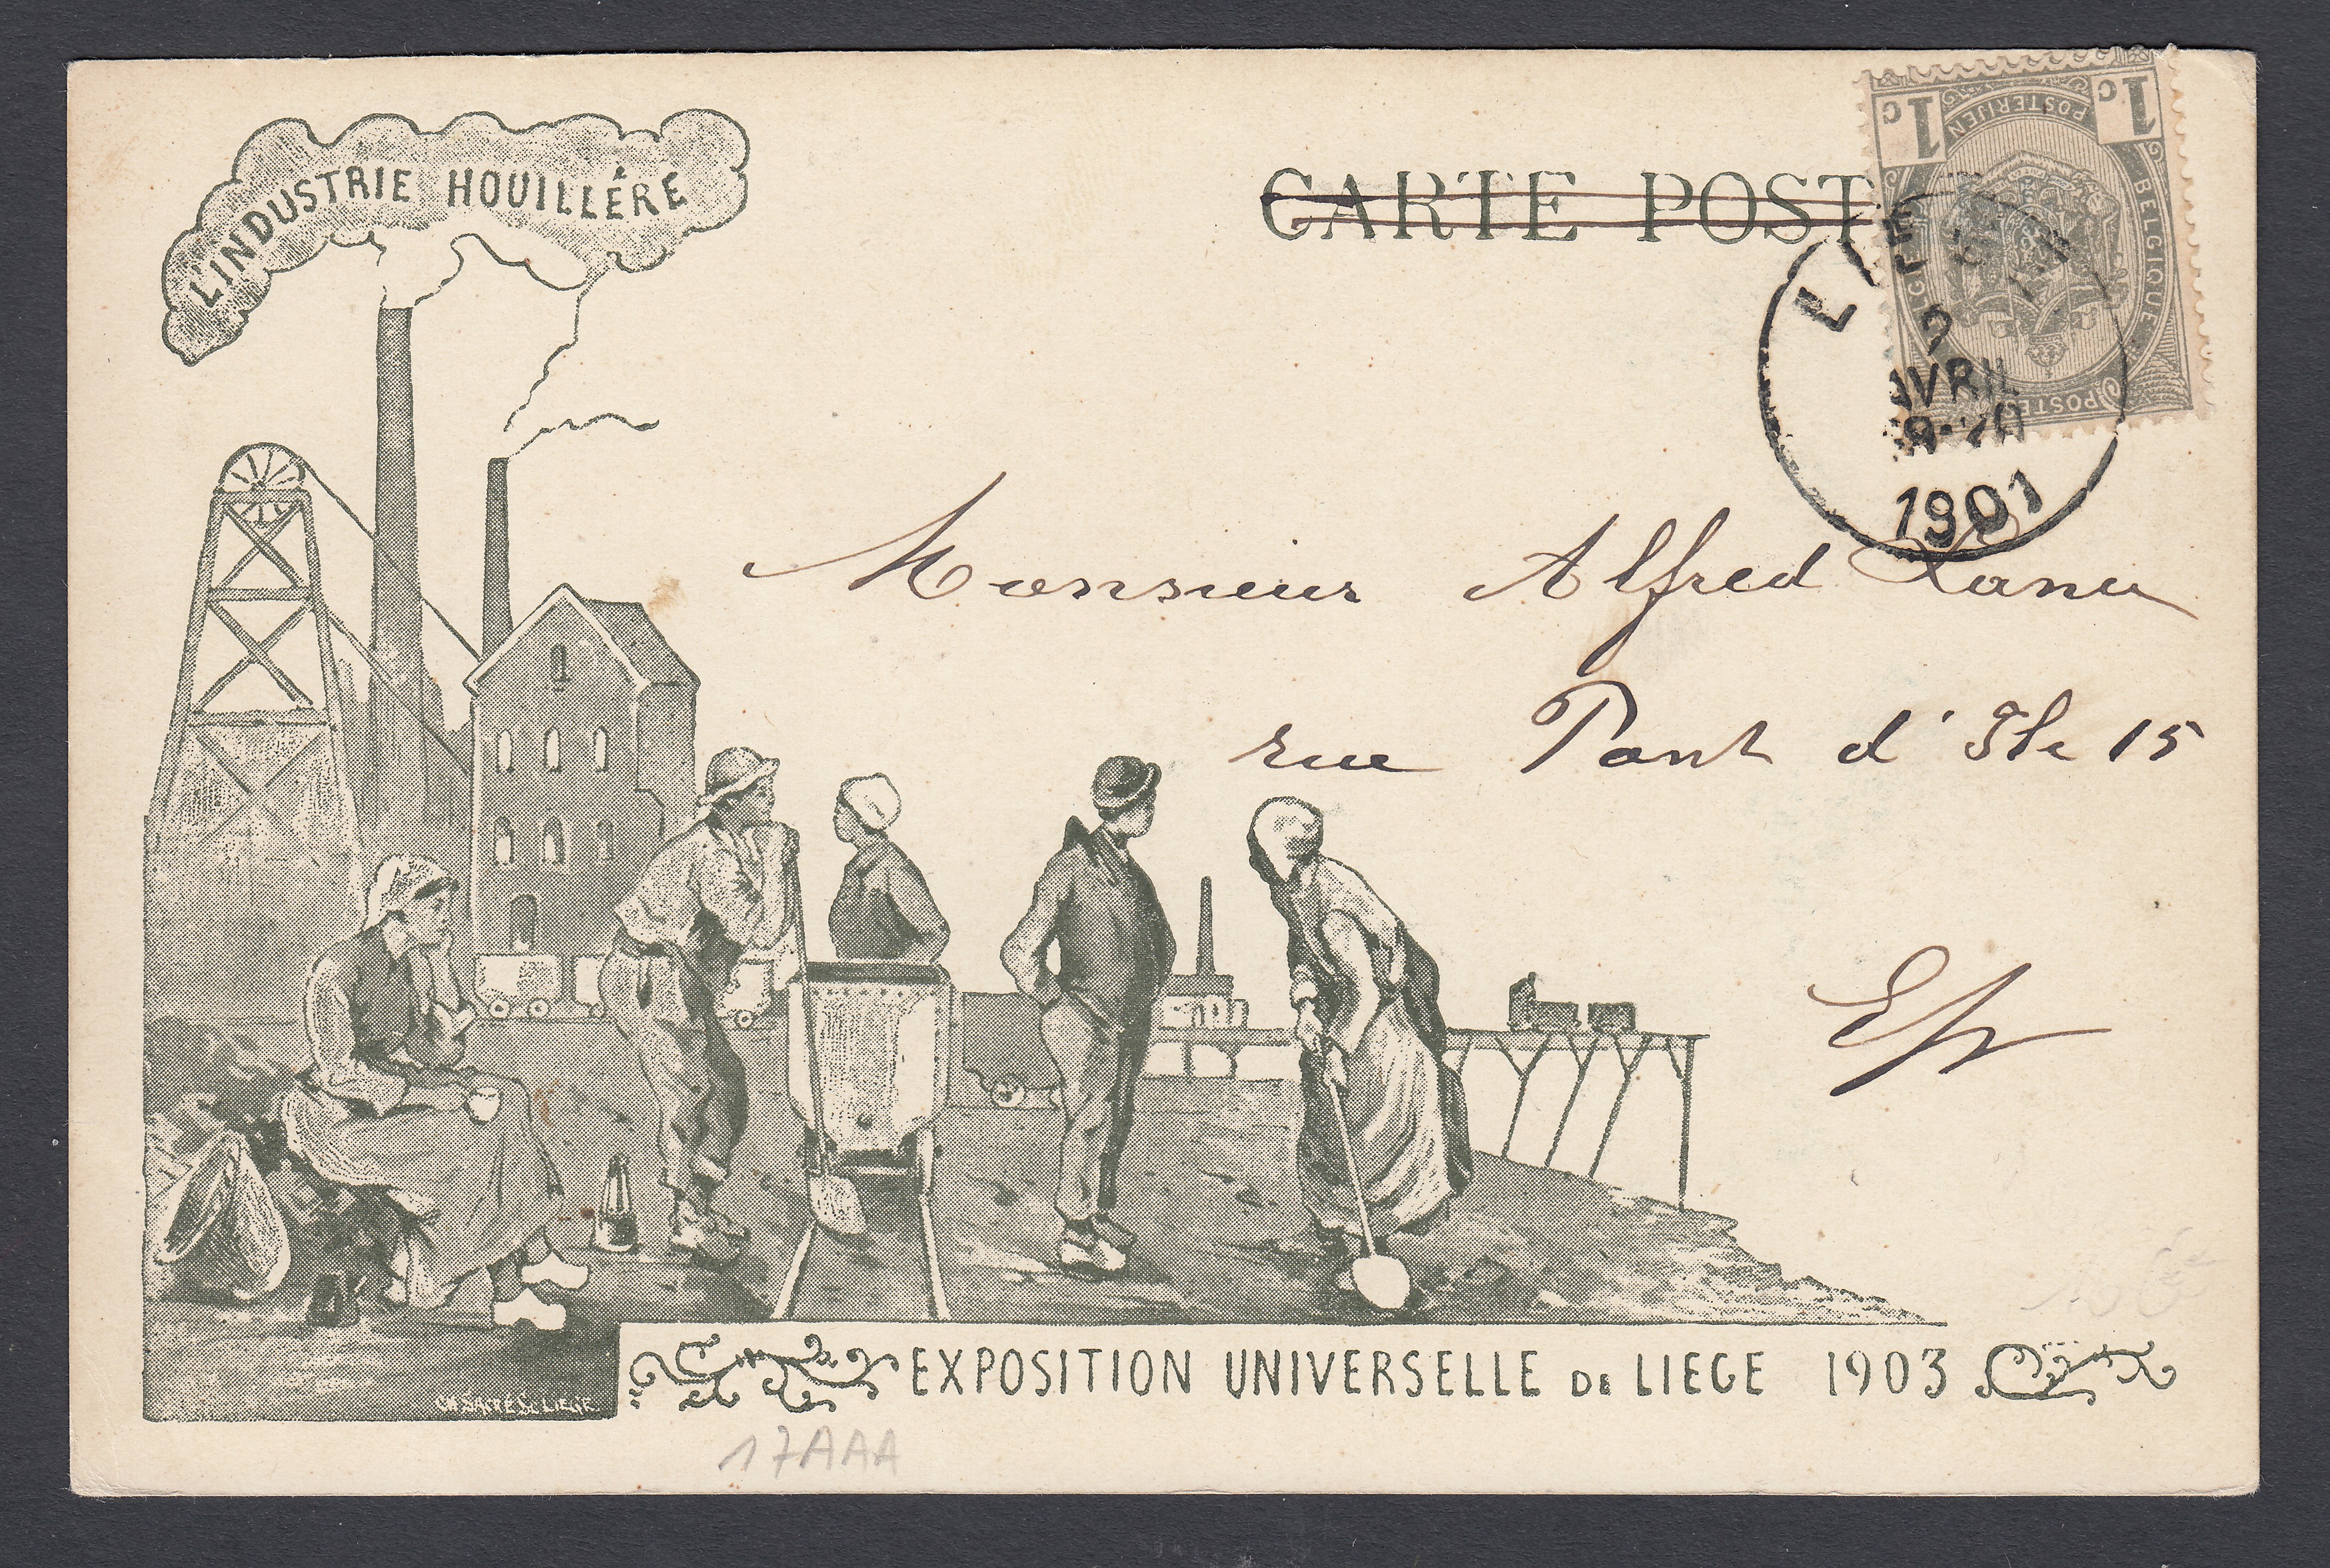 L'INDUSTRIE HOUILLÈRE
CARTE POST
1c 1c
POSTERIJEN
BELGIQUE
POSTES
LIEGE
AVRIL
1901
Monsieur Alfred
rue Pont d'Ile 15
EXPOSITION UNIVERSELLE DE LIEGE 1903
LIEGE
17AAA